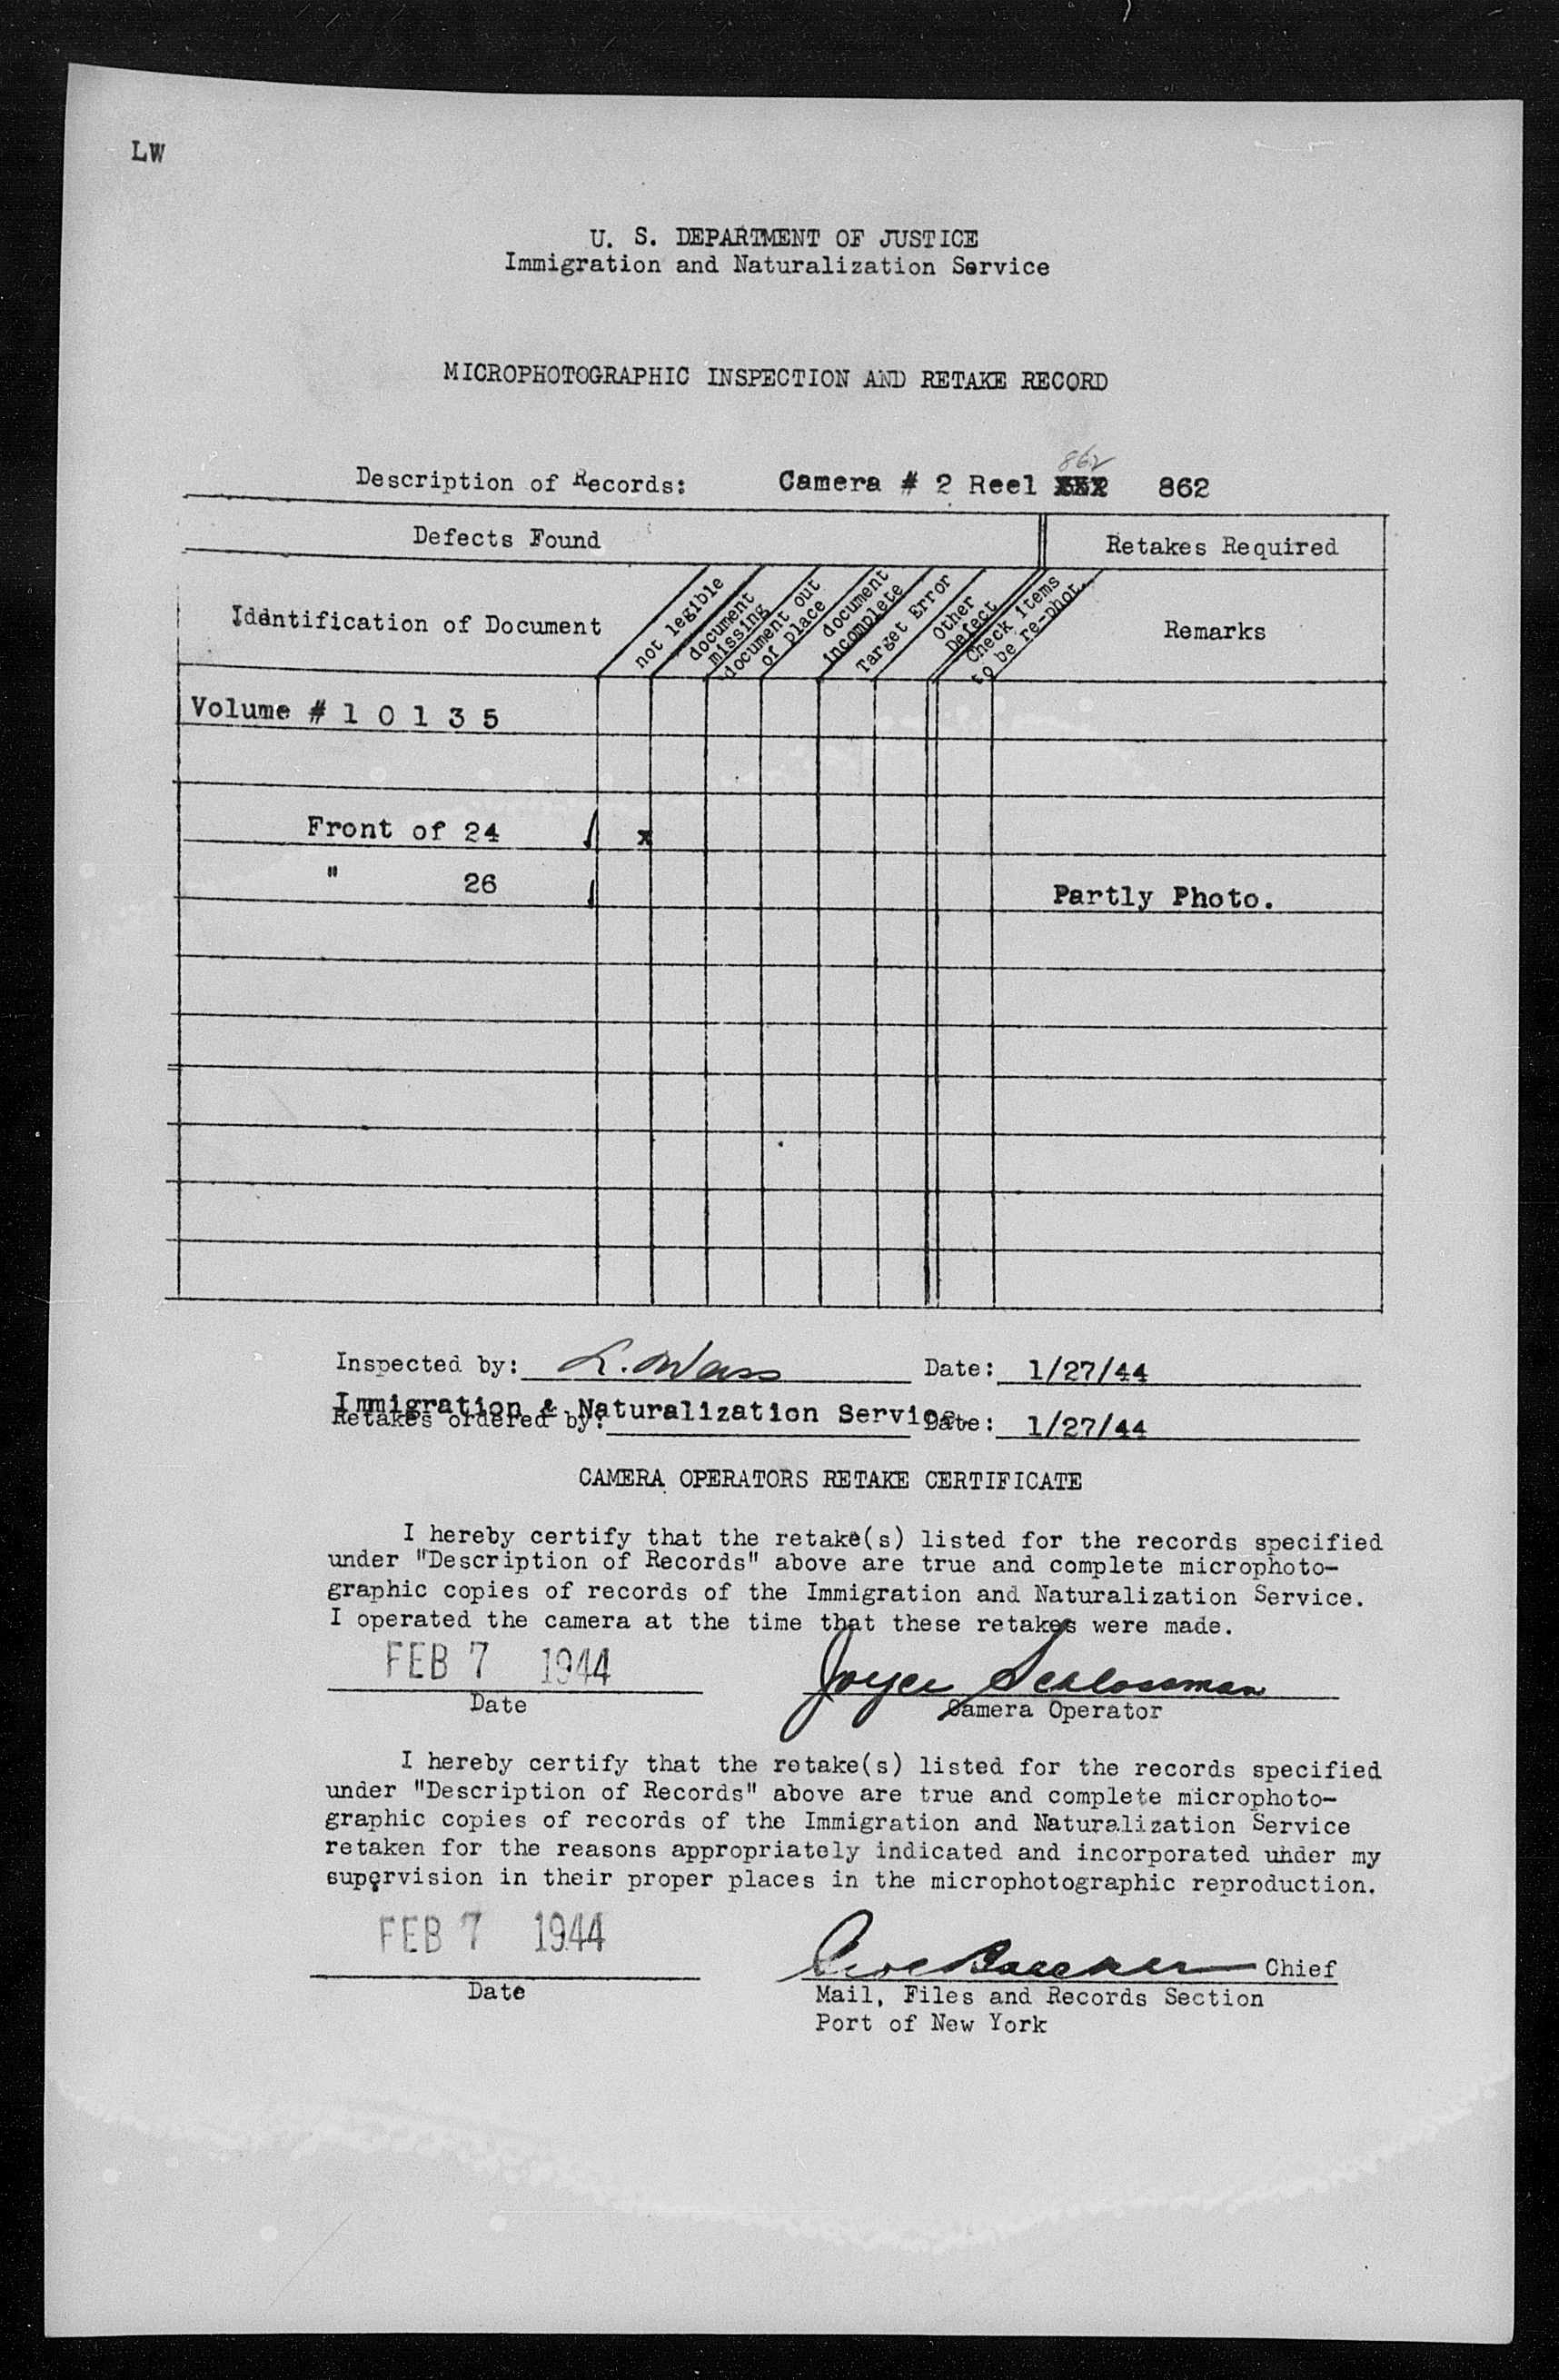 LW
U. S. DEPARTMENT OF JUSTICE
Immigration and Naturalization Service
MICROPHOTOGRAPHIC INSPECTION AND RETAKE RECORD
862
Description of Records: Camera # 2 Reel 862
Defects Found
Retakes Required
Identification of Document
not legible
document missing
document out of place
document incomplete
Target Error
Other Defect
Check items to be re-phot.
Remarks
Volume # 1 0 1 3 5
Front of 24 x
" 26 Partly Photo.
Inspected by: L. Weiss Date: 1/27/44
Immigration & Naturalization Service.
Retakes ordered by: Date: 1/27/44
CAMERA OPERATORS RETAKE CERTIFICATE
I hereby certify that the retake(s) listed for the records specified
under "Description of Records" above are true and complete microphoto-
graphic copies of records of the Immigration and Naturalization Service.
I operated the camera at the time that these retakes were made.
FEB 7 1944 Joyce Schlossman
Date Camera Operator
I hereby certify that the retake(s) listed for the records specified
under "Description of Records" above are true and complete microphoto-
graphic copies of records of the Immigration and Naturalization Service
retaken for the reasons appropriately indicated and incorporated under my
supervision in their proper places in the microphotographic reproduction.
FEB 7 1944
Chief
Date Mail, Files and Records Section
Port of New York